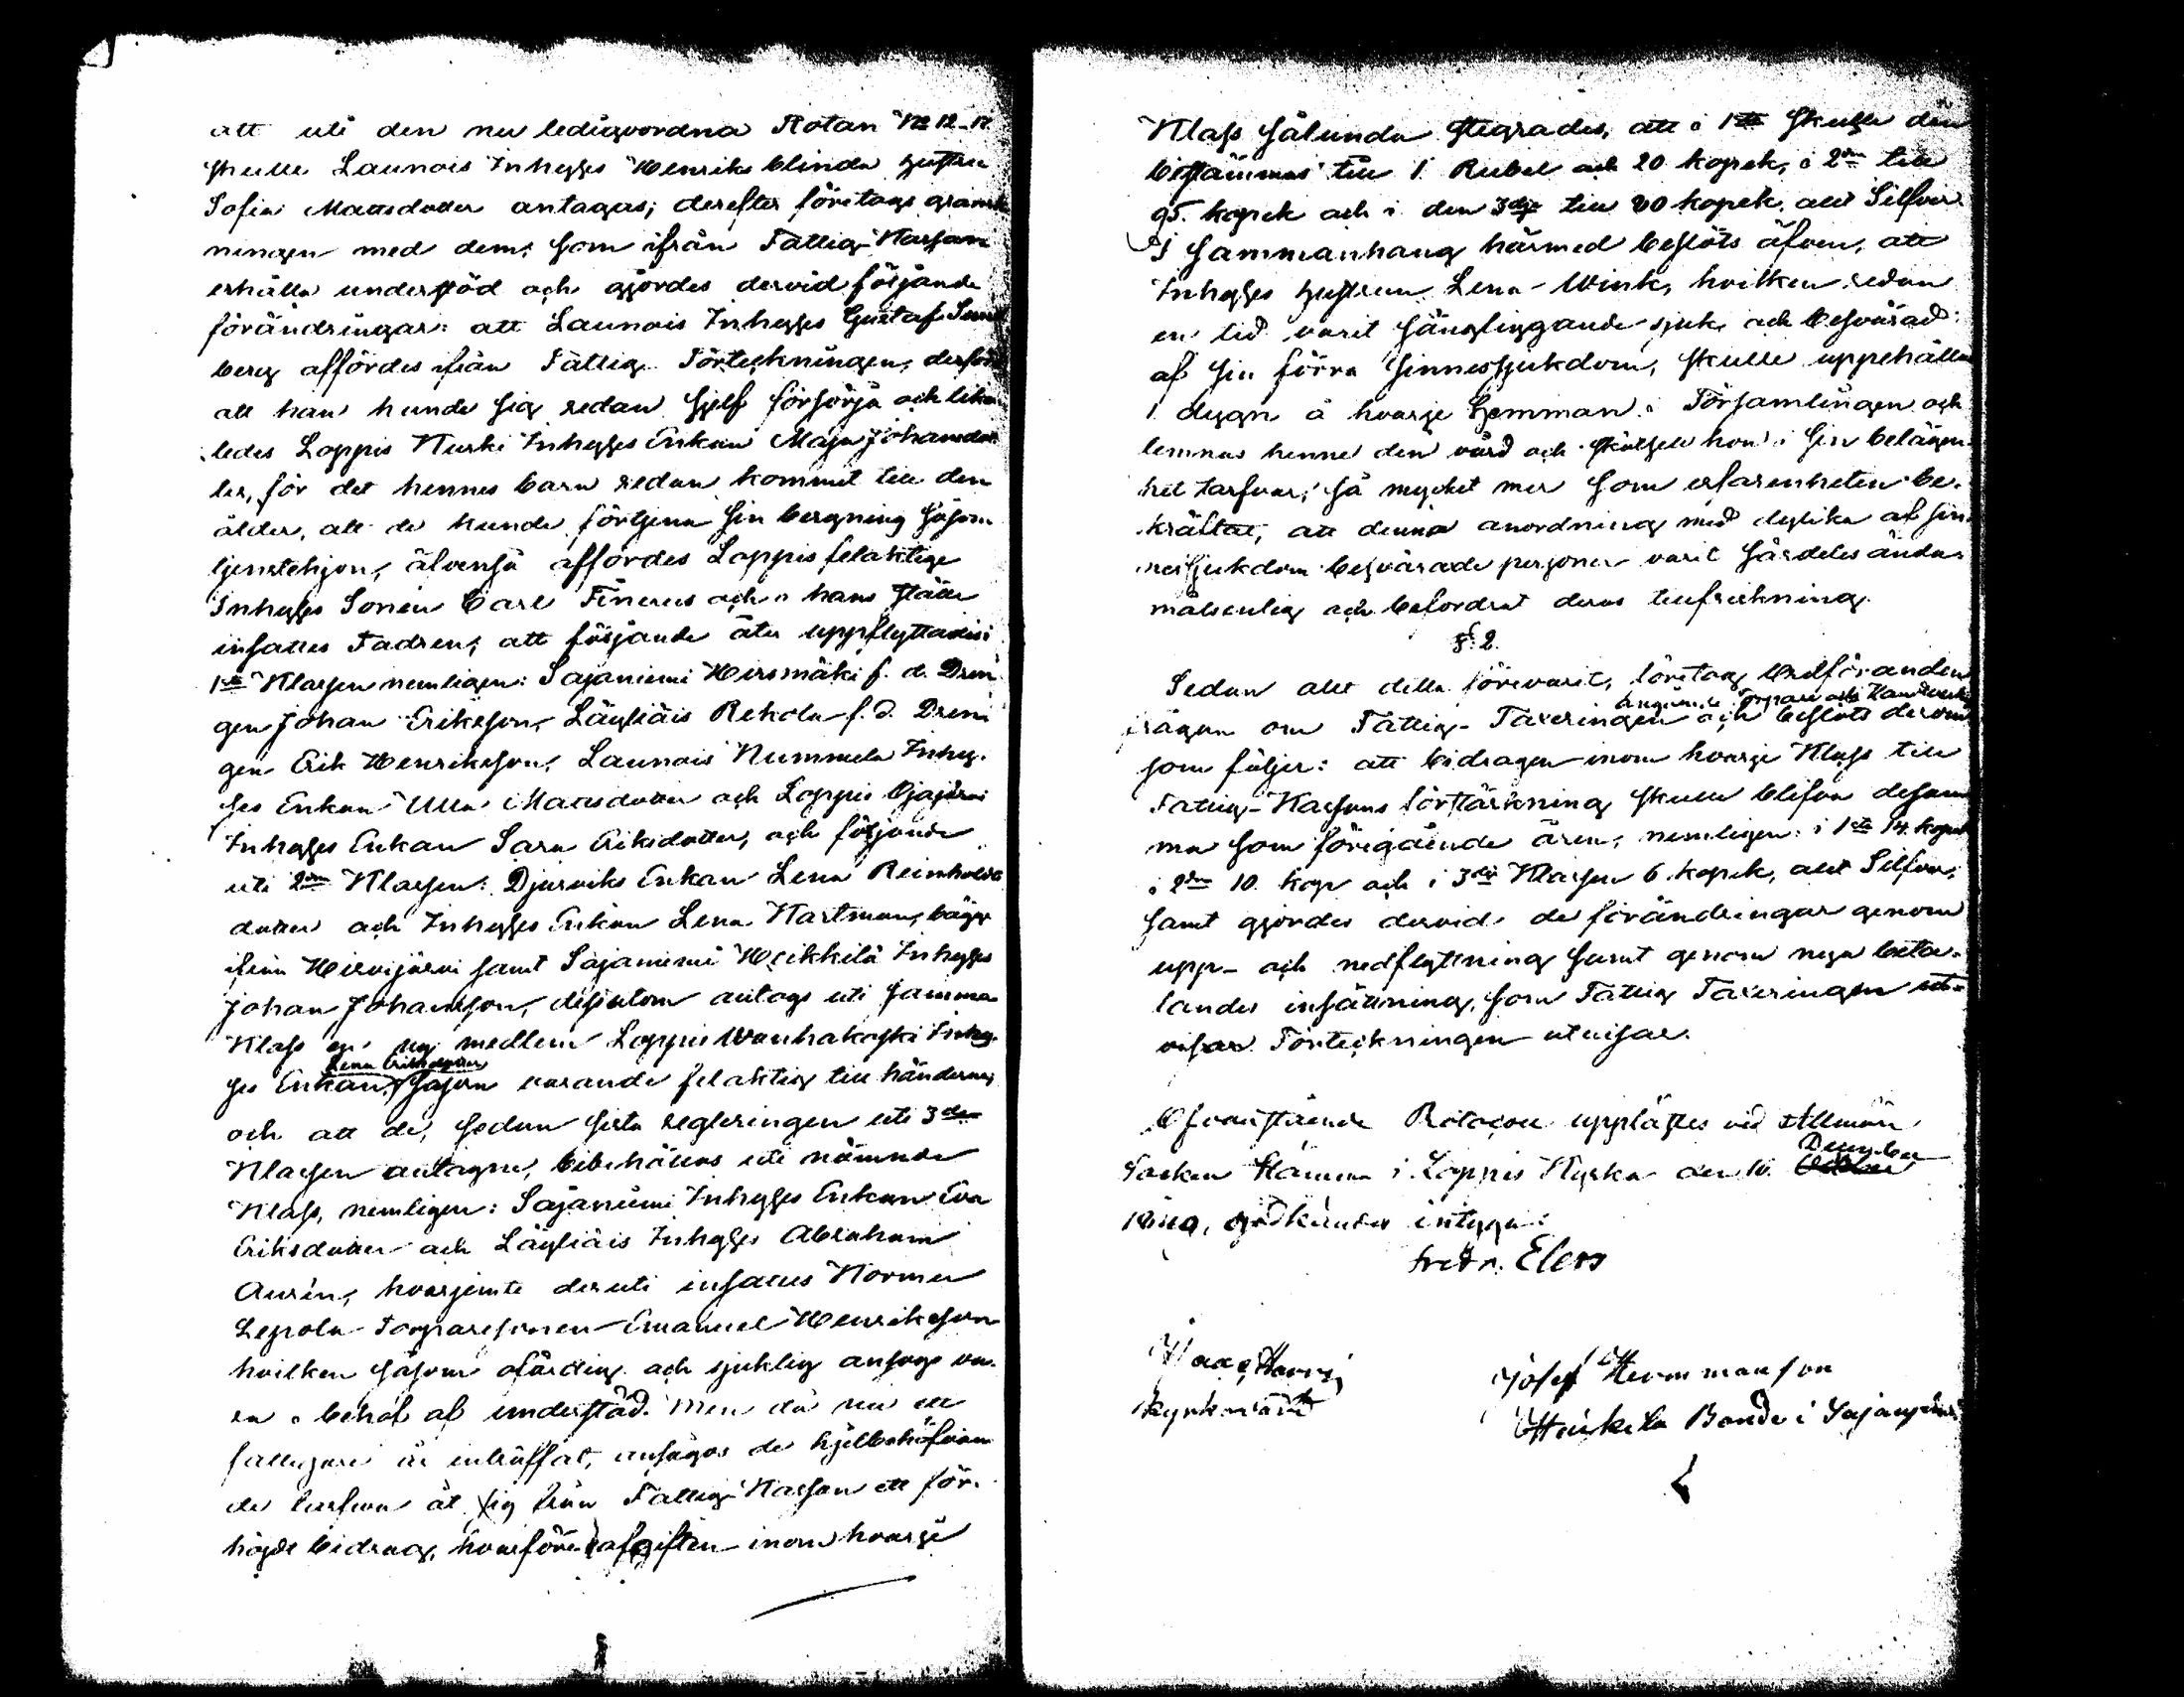 att uti den nu ledigvordna Rotan No 12
skulle Launois Inhyses Henriks blinda hustru
Sofia Mattsdotter antagas; derefter företogs gransk
ningen med dem, som ifrån Fattig-Kassan
erhålla understöd och gjordes dervid följande
förändringar: att Launois Inhyses Gustaf
berg affördes ifrån Fattig Förteckningen, derföre
att han kunde sig redan sjelf försörja och lika
ledes Loppis Kurki Inhyses Enkan Maja Johansdot
ter, för det hennes barn redan kommit till den
ålder, att de kunde förtjena sin bergning såsom
tjenstehjon, äfvenså affördes Loppis felaktige
Inhyses Sonen Carl Finerus och i hans ställe
insattes Fadren; att följande åter uppflyttades i
1sta Klassen nemligen: Sajaniemi Hirsmäki f. d. Drän
gen Johan Eriksson, Läyliäis Rekola f. d. Drän
gen Erik Henriksson, Launois Nummela Inhy-
ses Enkan Ulla Mattsdotter och Loppis Ojajärvi
Inhyses Enkan Sara Eriksdotter, och följande
uti 2dra Klassen: Djurviks Enkan Lena Reinholds
dotter och Inhyses Enkan Lena Hartman, bägge
ifrån Hirvijärvi samt Sajaniemi Heikkilä Inhyses
Johan Johansson, dessutom antogs uti samma
Klass en ny medlem Loppis Wanhakoski Inhy-
Lena Eriksdotter
ses Enkan, såsom varande felaktig till händerna;
och att de, sedan sista regleringen uti 3dje
Klassen antagne, bibehållas uti nämnde
Klass, nemligen: Sajaniemi Inhyses Enkan Eva
Eriksdotter och Läyliäis Inhyses Abraham
Aurén, hvarjemte deruti insattes Kormu
Lepola Torparesonen Emanuel Henriksson
hvilken såsom ofärdig och sjuklig ansågs va-
ra i behof af understöd. Men då nu ett
är inträffat, ansågos de hjelpbehöfvan
de tarfva åt sig från Fattig-Kassan ett för-
höjdt bidrag, hvarföre afgiften inom hvarje
Klass sålunda stegrades, att i 1sta skulle den
bestämmas till 1 Rubel och 20 kopek, i 2dra till
95 kopek och i den 3dje till 20 kopek allt Silfver.
I sammanhang härmed beslöts äfven, att
Inhyses hustrun Lena Wink, hvilken redan
en tid varit sängliggande sjuk, och besvärad
af sin förra sinnessjukdom, skulle uppehållas
1 dygn å hvarje Hemman i Församlingen och
lemnas henne den vård och skötsel hon i sin belägen-
het tarfvar, så mycket mer som erfarenheten be-
kräftat, att denna anordning med dylika af sin-
nessjukdom besvärade personer varit särdeles ända-
målsenlig och befordrat deras tillfriskning.
§. 2.
Sedan allt detta förevarit, företog Ordföranden
angående Torpare och Handtverk
frågan om Fattig-Taxeringen och beslöts derom
som följer: att bidragen inom hvarje Klass till
Fattig-Kassans förstärkning skulle blifva desam
ma som föregående åren, nemligen: i 1sta 14 kopek
i 2dra 10 kop och i 3dje Klassen 6 kopek, allt Silfver;
samt gjordes dervid de förändringar genom
upp- och nedflyttning samt genom nya beta-
landes insättning, som Fattig Taxeringen ut-
visar Förteckningen utvisar.
Ofvanstående Protocoll upplästes vid Allmän
December
Socken Stämma i Loppis Kyrka den 10 October
godkändes intyga:
Fredr. Elers
Isaac Harri
Kyrkvärd
Josef Hermmanson
Heikkila Bonde i Sajaniemi